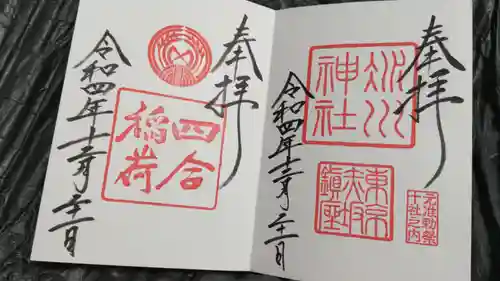 奉拝
氷川
神社
東京
赤坂
鎮座
准勅祭
十社之内
令和四年十二月二十一日
奉拝
四合
稲荷
令和四年十二月二十一日